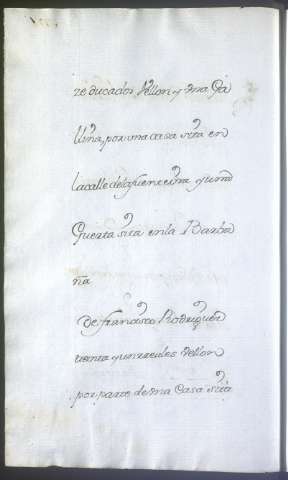 ze ducados Vellon y vna Ga
llina, por vna casa sita en
la calle de la fuenre y vna
Querta sita en la Barba
ña
De francisco Rodriguez
treinta y un reales Vellon
por parte de vna Casa sita